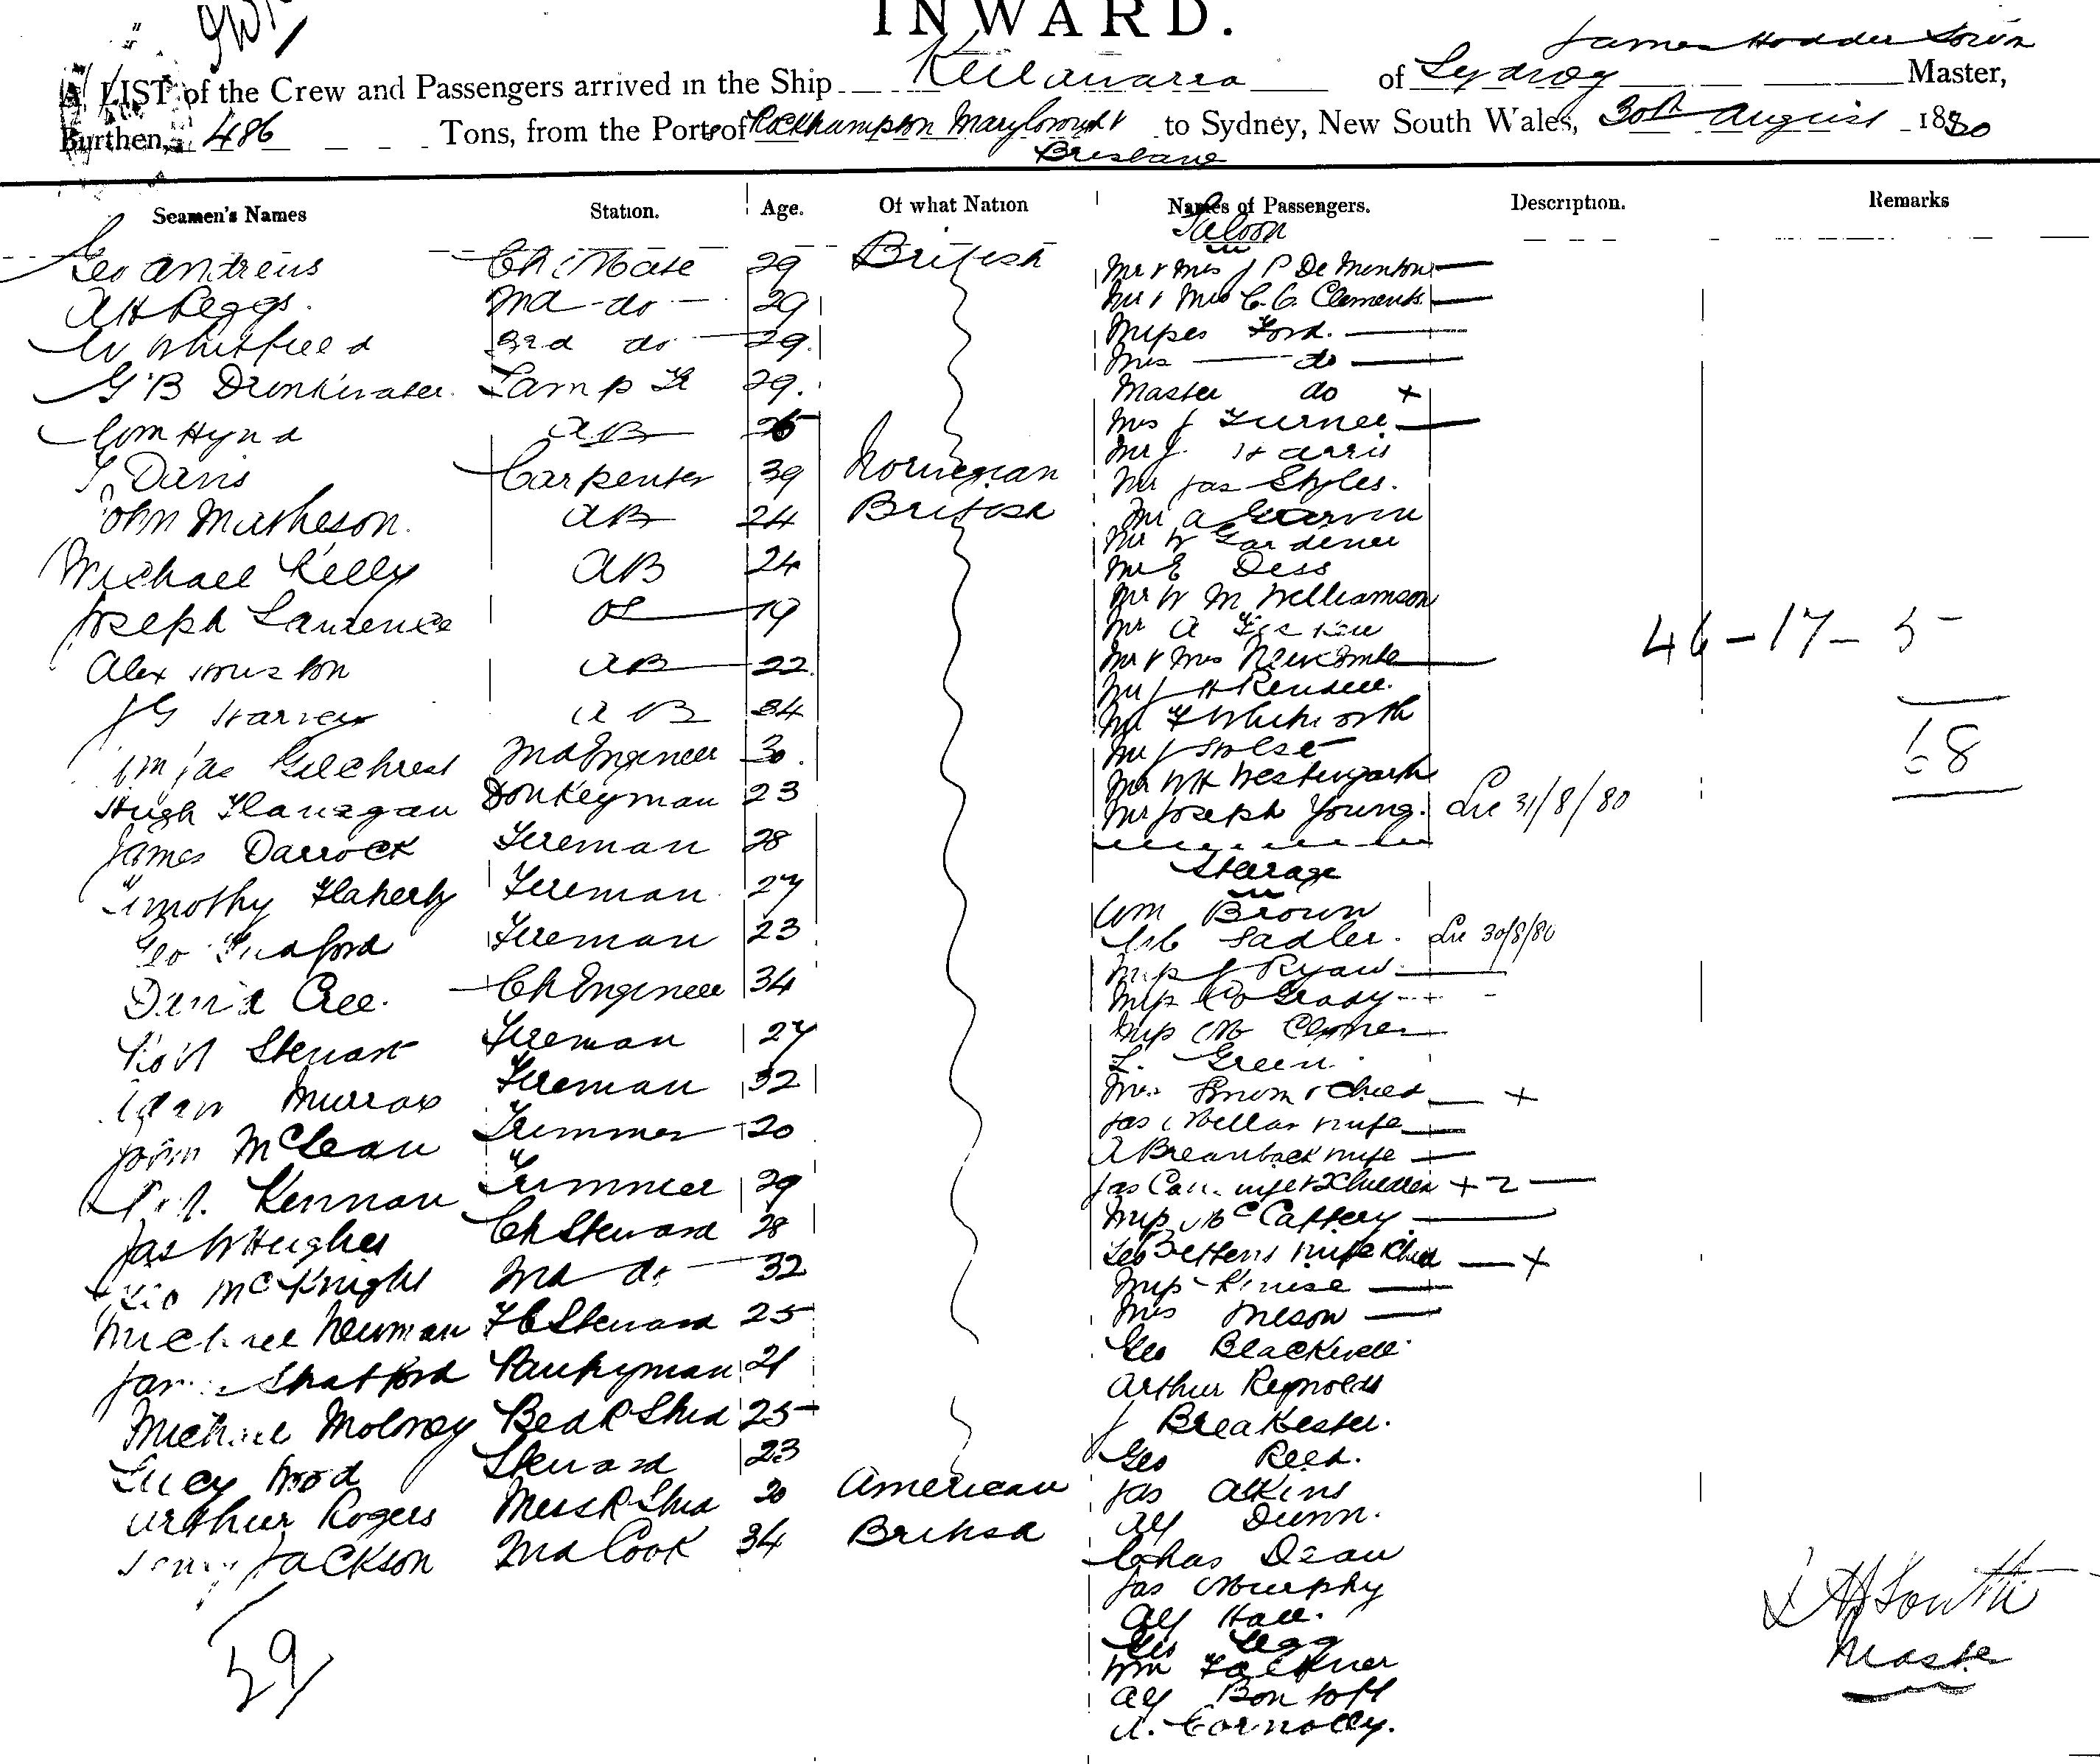 INWARD.
James Hodder South
A LIST of the Crew and Passengers arrived in the Ship Keilawarra of Sydney Master,
Burthen, 486 Tons, from the Ports of Rockhampton Maryboro' & to Sydney, New South Wales, 30th August 1880
Brisbane
Seamen's Names Station. Age. Of what Nation Names of Passengers. Description. Remarks
Saloon
Geo Andrews Ch Mate 29 British Mr & Mrs J P De Menton
A H Peggs. 2nd do 29 Mr & Mrs C. C. Clements
W Whitfield 3rd do 29 Misses Ford.
Mrs do
G B Drinkwater Lamp Tr 29. Master do +
Wm Hynd AB 26 Mrs J Turner
Mr J. Harris
T Davis Carpenter 39 Norwegian Mr Jas Styles.
John Matheson. AB 24 British Mr A Garvin
Mr W Gardiner
Michael Kelly AB 24 Mr E Dess
Mr W M Williamson
Joseph Laurence OS 19 Mr A
46-17-5
Alex Houston AB 22 Mr & Mrs Newcombe
Mr J H Rendell.
J G Harvey AB 34 Mr F Whitworth
68
Wm Jas Gilchrist 2nd Engineer 30. Mr J Holse
Mr W H Westengarth
Hugh Flanagan Donkeyman 23 Mr Joseph Young. 31/8/80
James Darrock Fireman 28
Steerage
Timothy Flaherty Fireman 27 Wm Brown
Geo Fireman 23 Sadler. 30/8/80
Miss J Ryan
David Cree. Ch Engineer 34 Miss O'Grady
Miss M
Robt Stewart Fireman 27 L. Green
Murray Fireman 32 Mrs Brown & Child +
John McLean Trimmer 20 Jas Wife
A Breanback Wife
Kennan Trimmer 29 Jas wife & 2 Children + 2
Jas W Hughes Ch Steward 28 Miss McCaffery
Geo McKnight 2nd do 32 Geo Bettens wife Child +
Miss Kruse
Michael Newman F C Steward 25 Mrs Meson
Geo Blackwell
James Shatford Pantryman 21 Arthur Reynolds
Michael Moloney Bed R Stwd 25 J Breakester.
Lucy Wood Steward 23 Geo Reed.
Arthur Rogers Mess R Stwd 20 American Jas Atkins
Alf Dunn.
Jackson 2nd Cook 34 British Chas Dean
Jas Murphy
Alf Hall.
J H South
Geo Legg
29
Master
Wm Falkner
Alf Bontoft
A. Connolly.